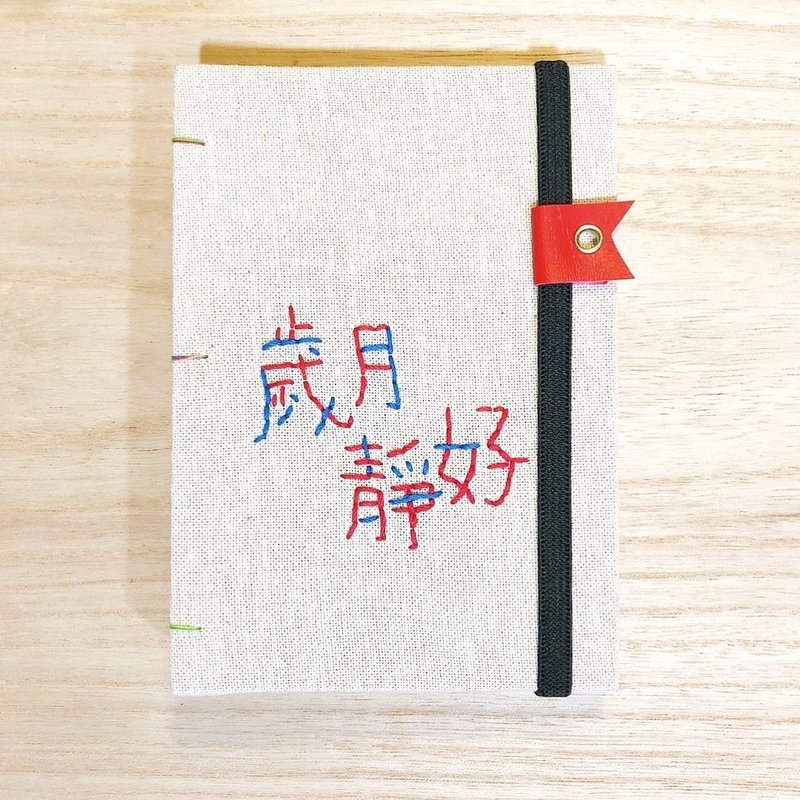 歲月
靜好